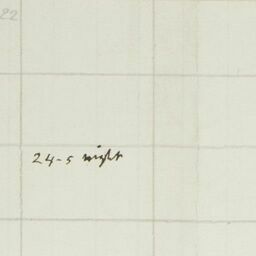 22
24-5 night